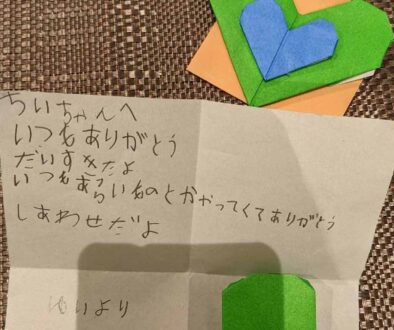 ちいちゃんへ
いつもありがとう
だいすきだよ
いつもあらいものとかやってくてありがとう
しあわせだよ
ゆいより